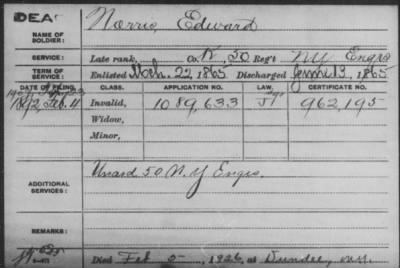 DEA
Norris, Edward
NAME OF SOLDIER:
SERVICE: Late rank, Co. K, 50 Reg't NY Engrs
TERM OF SERVICE: Enlisted Mch. 22, 1865 Discharged June 13, 1865
DATE OF FILING. CLASS. APPLICATION NO. LAW. CERTIFICATE NO.
1892, Feb. 4 Invalid, 1089,633 962,195
Widow,
Minor,
ADDITIONAL SERVICES: Unasd 50 N.Y Engrs.
REMARKS:
Died Feb 5, 1926, at Dundee, N.Y.